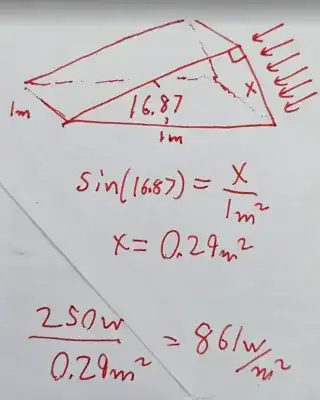 x
1m
16.87
1m
sin(16.87) = x/1m²
x = 0.29m²
250w/0.29m² = 861w/m²